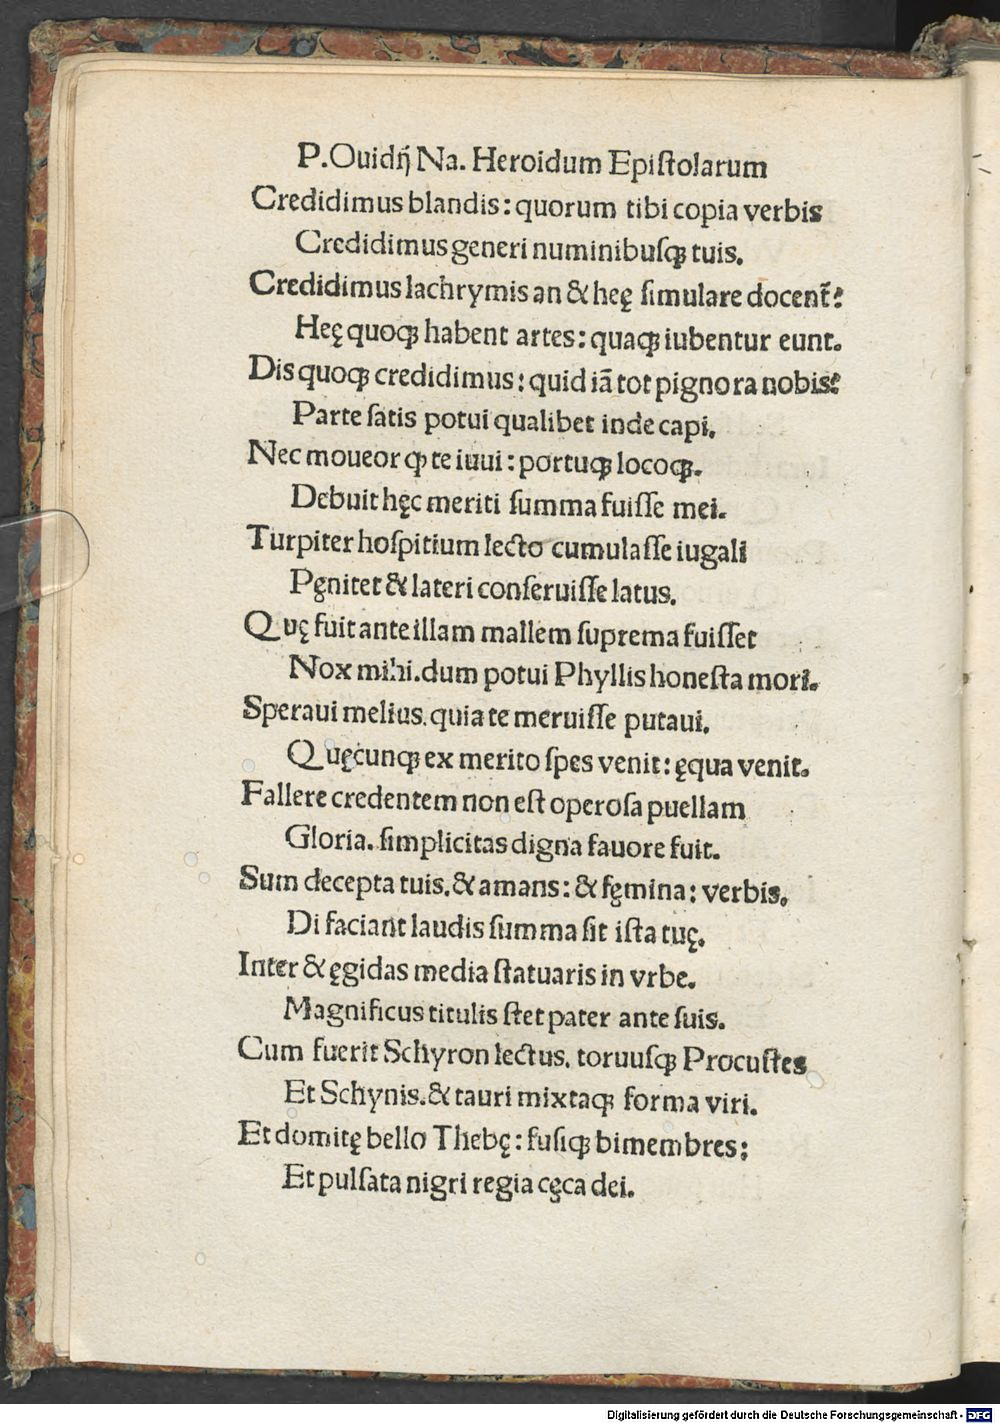 P. Ouidiȷ̃ Na. Heroidum Epiſtolarum
Credidimus blandis: quorum tibi copia verbis
Credidimus generi numinibuſqꝫ tuis.
Credidimus lachrymis an & heę ſimulare docent̃?
Heę quoqꝫ habent artes: quaqꝫ iubentur eunt.
Dis quoqꝫ credidimus: quid iã tot pignora nobis?
Parte ſatis potui qualibet inde capi.
Nec moueor ꝙ te iuui: portuqꝫ locoqꝫ.
Debuit hęc meriti ſumma fuiſſe mei.
Turpiter hoſpitium lecto cumulaſſe iugali
Pęnitet & lateri conſeruiſſe latus.
Quę fuit ante illam mallem ſuprema fuiſſet
Nox mihi. dum potui Phyllis honeſta mori.
Speraui melius. quia te meruiſſe putaui.
Quęcunqꝫ ex merito ſpes venit: ęqua venit.
Fallere credentem non eſt operoſa puellam
Gloria. ſimplicitas digna fauore fuit.
Sum decepta tuis. & amans: & fęmina: verbis.
Di faciant laudis ſumma ſit iſta tuę.
Inter & ęgidas media ſtatuaris in vrbe.
Magnificus titulis ſtet pater ante ſuis.
Cum fuerit Schyron lectus. toruuſqꝫ Procuſtes
Et Schynis. & tauri mixtaqꝫ forma viri.
Et domitę bello Thebę: fuſiqꝫ bimembres:
Et pulſata nigri regia cęca dei.
Digitalisierung gefördert durch die Deutsche Forschungsgemeinschaft - DFG